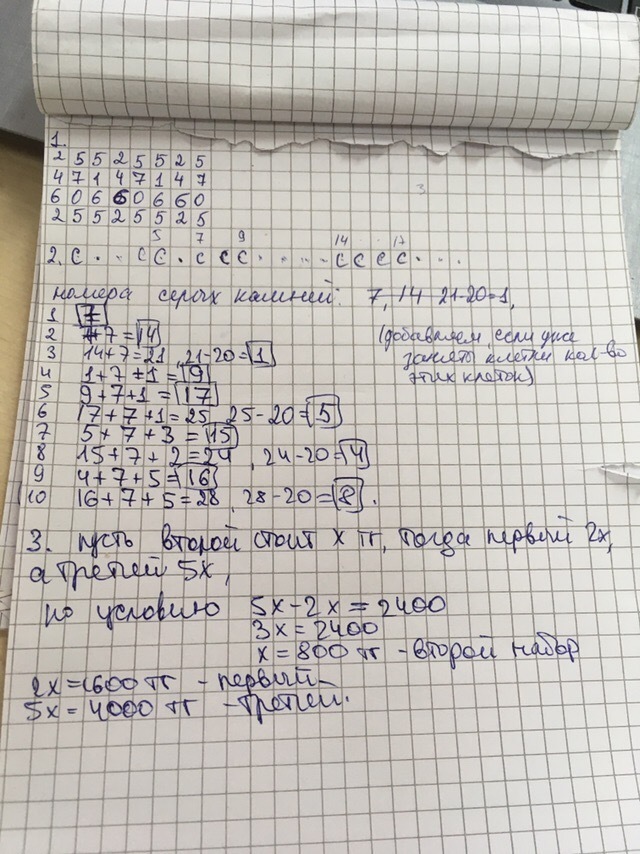 1.
2 5 5 2 5 5 2 5
4 7 1 4 7 1 4 7
6 0 6 6 0 6 6 0
2 5 5 2 5 5 2 5
5 7 9 14 17
2. с . . с с . с с с . . . . . с с с с . . .
номера серых камней: 7, 14 21-20=1,
1 7
2 7+7=14 (добавляем, если уже
3 14+7=21, 21-20=1 заняты клетки кол-во
4 1+7+1=9 этих клеток)
5 9+7+1=17
6 17+7+1=25, 25-20=5
7 5+7+3=15
8 15+7+2=24, 24-20=4
9 4+7+5=16
10 16+7+5=28, 28-20=8.
3. пусть второй стоит x тг, тогда первый 2x,
а третей 5x,
по условию 5x-2x=2400
3x=2400
x=800 тг - второй набор
2x=1600 тг - первый
5x=4000 тг - третей.